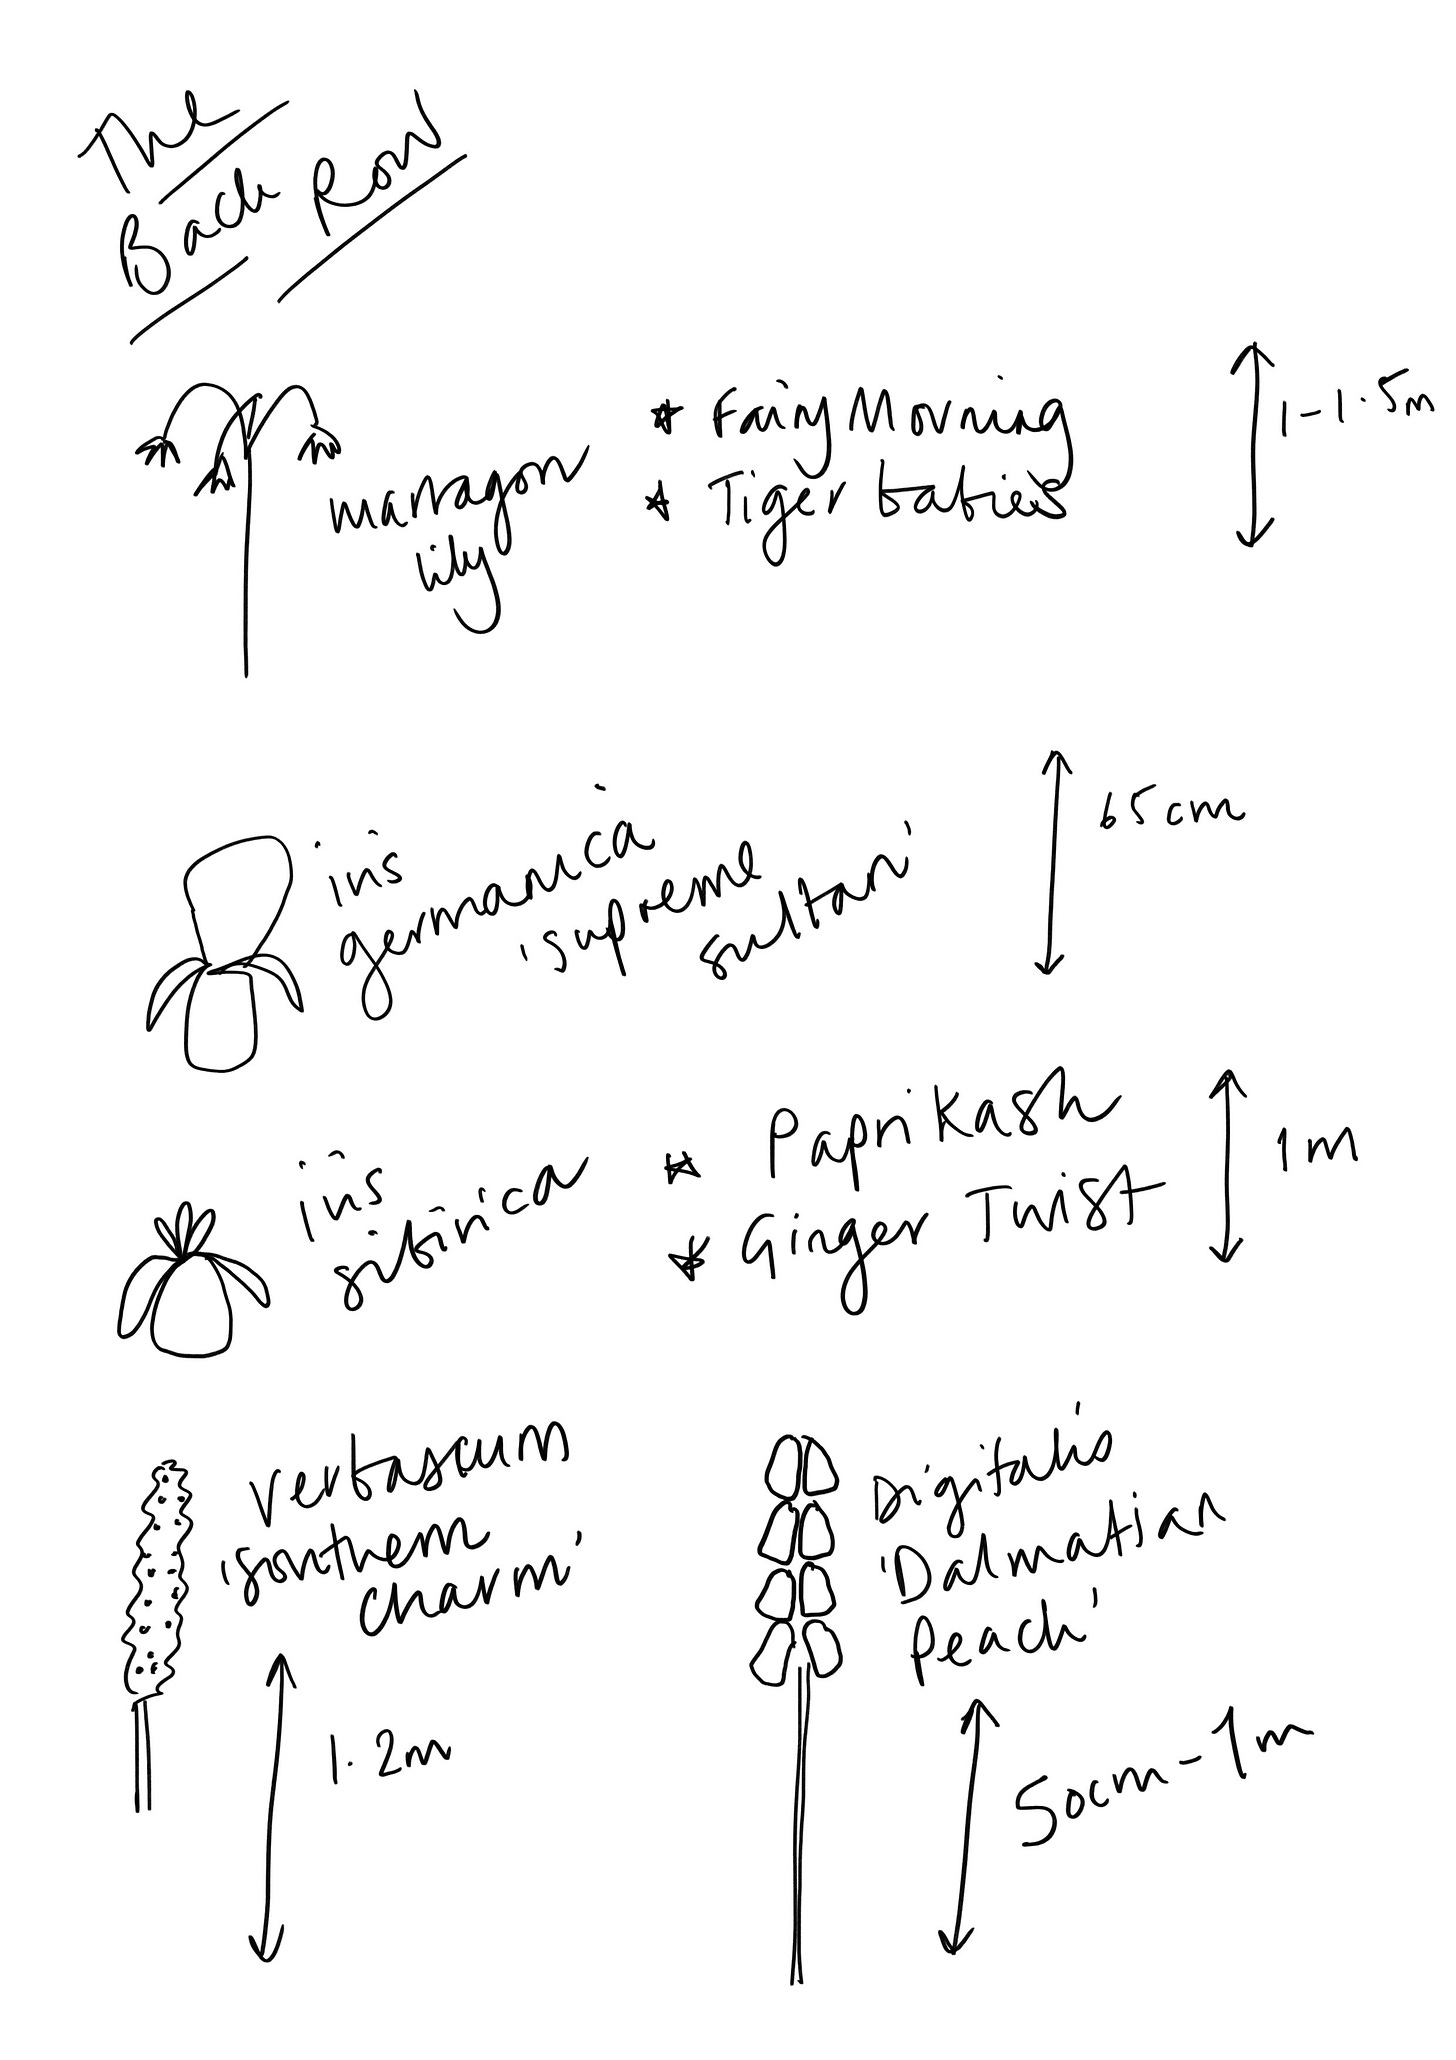 The
Back Row
martagon
lily
★ Fairy Morning
★ Tiger babies
1-1.5m
iris
germanica
'supreme
sultan'
65cm
iris
sibirica
★ Paprikash
★ Ginger Twist
1m
verbascum
'southern
charm'
1.2m
Digitalis
'Dalmatian
Peach'
50cm-1m